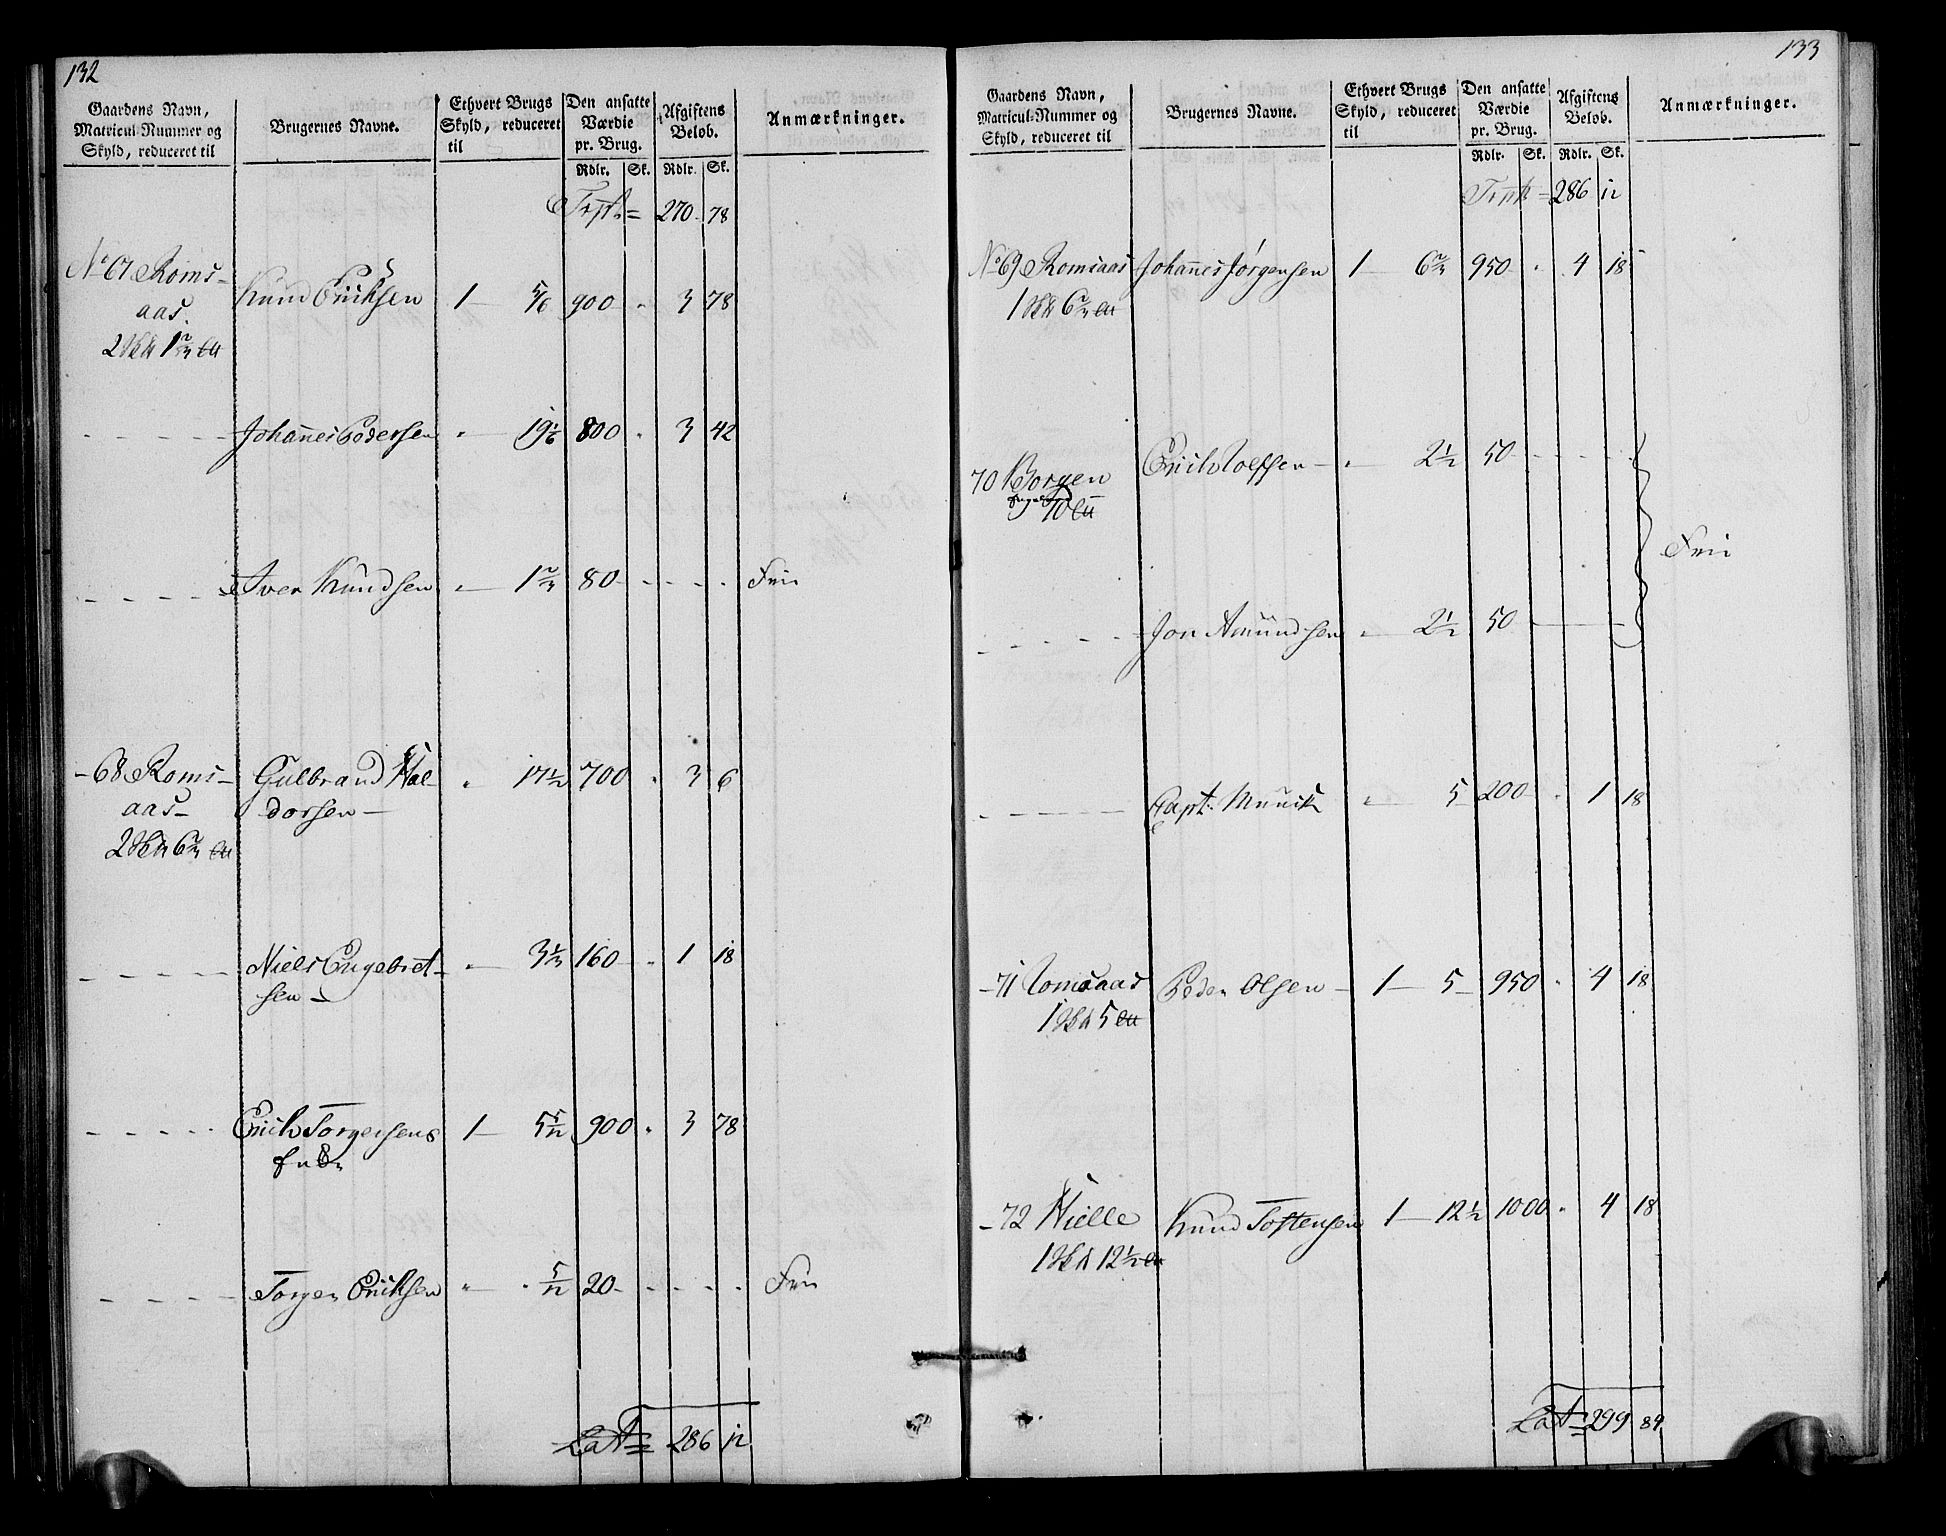 132
Gaardens Navn, Matricul-Nummer og Skyld, reduceret til | Brugernes Navne. | Ethvert Brugs Skyld, reduceret til | Den ansatte Værdie pr. Brug. Rdlr. Sk. | Afgiftens Beløb. Rdlr. Sk. | Anmærkninger.
Trspt. = 270 78
No 67 Roms-
aas.
Knud Eriksen 1 — 5/6 900 " 3 78
1 2/3
Johannes Pedersen " — 19 1/6 800 " 3 42
Iver Knudsen " — 1 2/3 80 - - - - Fri
- 68 Roms-
aas -
Gulbrand Hal-
dorsen — " 17 1/2 700 " 3 6
6 2/3
Niels Engebret-
sen — " — 3 1/3 160 " 1 18
Erich Torgersens 1 — 5 5/12 900 " 3 78
Torger Eriksen " — " 5/12 20 - - - - Fri
Lat = 286 12
133
Gaardens Navn, Matricul-Nummer og Skyld, reduceret til | Brugernes Navne. | Ethvert Brugs Skyld, reduceret til | Den ansatte Værdie pr. Brug. Rdlr. Sk. | Afgiftens Beløb. Rdlr. Sk. | Anmærkninger.
Trspt = 286 12
No 69 Romsaas Johannes Jørgensen 1 — 6 2/3 950 " 4 18
6 2/3
70 Borgen Erich — " — 2 1/2 50 - - - -
10
Fri
Jon Amundsen " — 2 1/2 50
Capt. Munck " 5 200 " 1 18
- 71 Romsaas Peder Olsen — 1 — 5 — 950 " 4 18
5
- 72 Hielle Knud Tostensen 1 — 12 1/2 1000 " 4 18
12 1/2
Lat = 299 84